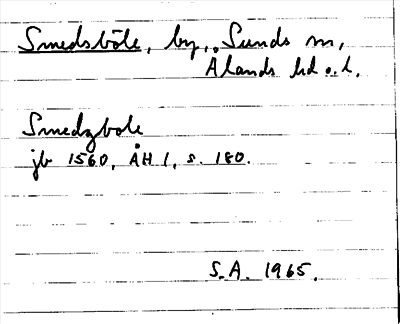 Smedsböle, by, Sunds sn,
Ålands hd o. l.
Smedzbole
jb 1560, ÅH 1, s. 180.
S.A. 1965.